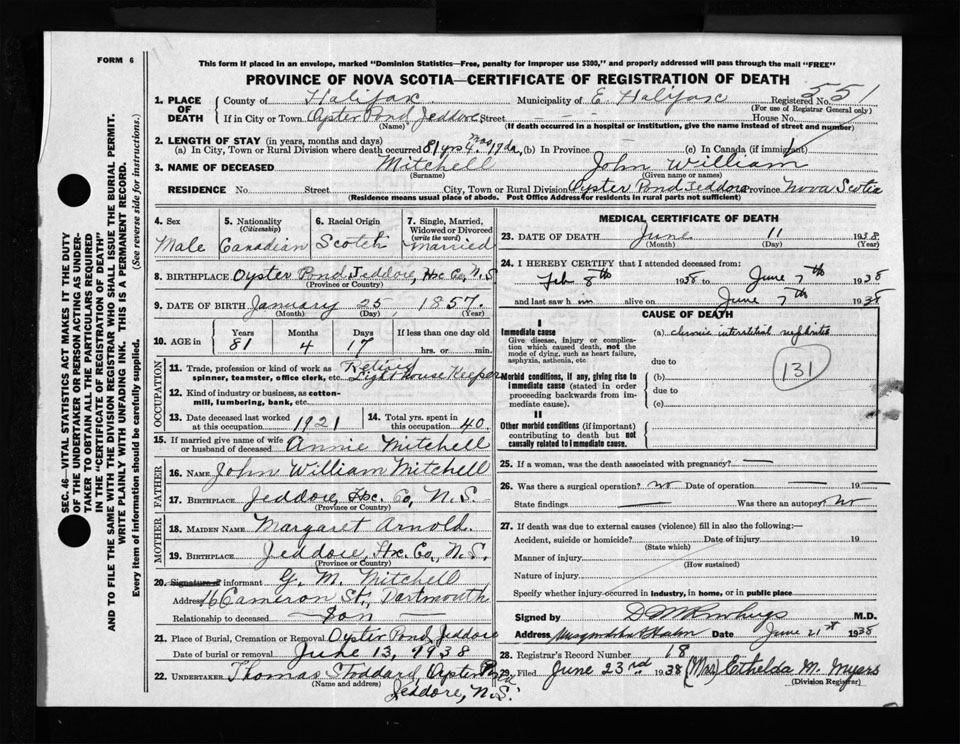 FORM 6
This form if placed in an envelope, marked "Dominion Statistics—Free, penalty for improper use $300," and properly addressed will pass through the mail "FREE"
PROVINCE OF NOVA SCOTIA—CERTIFICATE OF REGISTRATION OF DEATH
551
1. PLACE OF DEATH County of Halifax Municipality of E. Halifax Registered No.
(For use of Registrar General only)
If in City or Town Oyster Pond Jeddore Street House No.
(Name) (If death occurred in a hospital or institution, give the name instead of street and number)
2. LENGTH OF STAY (in years, months and days)
(a) In City, Town or Rural Division where death occurred 81 yrs 4 mos 17 da. (b) In Province (c) In Canada (if immigrant)
3. NAME OF DECEASED Mitchell John William
(Surname) (Given name or names)
RESIDENCE No. Street City, Town or Rural Division Oyster Pond Jeddore Province Nova Scotia
(Residence means usual place of abode. Post Office Address for residents in rural parts not sufficient)
4. Sex Male
5. Nationality (Citizenship) Canadian
6. Racial Origin Scotch
7. Single, Married, Widowed or Divorced (write the word) Married
8. BIRTHPLACE Oyster Pond Jeddore, Hx Co, N.S
(Province or Country)
9. DATE OF BIRTH January 25, 1857.
(Month) (Day) (Year)
10. AGE in Years 81 Months 4 Days 17 If less than one day old hrs. or min.
OCCUPATION
11. Trade, profession or kind of work as spinner, teamster, office clerk, etc. Retired Lighthouse Keeper
12. Kind of industry or business, as cotton-mill, lumbering, bank, etc.
13. Date deceased last worked at this occupation 1921
14. Total yrs. spent in this occupation 40.
15. If married give name of wife or husband of deceased Annie Mitchell
FATHER
16. NAME John William Mitchell
17. BIRTHPLACE Jeddore, Hx. Co, N.S.
(Province or Country)
MOTHER
18. MAIDEN NAME Margaret Arnold.
19. BIRTHPLACE Jeddore, Hx. Co, N.S.
(Province or Country)
20. Signature of informant G. M. Mitchell
Address 16 Cameron St., Dartmouth
Relationship to deceased — Son —
21. Place of Burial, Cremation or Removal Oyster Pond, Jeddore
Date of burial or removal June 13, 1938
22. UNDERTAKER Thomas Stoddard, Oyster Pond
(Name and address)
Jeddore, N.S.
MEDICAL CERTIFICATE OF DEATH
23. DATE OF DEATH June 11 1938
(Month) (Day) (Year)
24. I HEREBY CERTIFY that I attended deceased from:
Feb 8th 1938 to June 7th 1938
and last saw him alive on June 7th 1938
CAUSE OF DEATH
I
Immediate cause
Give disease, injury or complication which caused death, not the mode of dying, such as heart failure, asphyxia, asthenia, etc
(a) chronic interstitial nephritis
due to
Morbid conditions, if any, giving rise to immediate cause (stated in order proceeding backwards from immediate cause).
(b)
due to
(c)
131
II
Other morbid conditions (if important) contributing to death but not causally related to immediate cause.
25. If a woman, was the death associated with pregnancy? —
26. Was there a surgical operation? no Date of operation — 19 —
State findings — Was there an autopsy? no
27. If death was due to external causes (violence) fill in also the following:—
Accident, suicide or homicide? Date of injury 19
(State which)
Manner of injury
(How sustained)
Nature of injury
Specify whether injury occurred in industry, in home, or in public place
Signed by M.D.
Address Date June 21st 1938
28. Registrar's Record Number 18
29. Filed June 23rd 1938 (Mrs) Ethelda M. Myers
(Division Registrar)
SEC. 46—VITAL STATISTICS ACT MAKES IT THE DUTY
OF THE UNDERTAKER OR PERSON ACTING AS UNDER-
TAKER TO OBTAIN ALL THE PARTICULARS REQUIRED
IN THE "CERTIFICATE OF REGISTRATION OF DEATH"
AND TO FILE THE SAME WITH THE DIVISION REGISTRAR WHO SHALL ISSUE THE BURIAL PERMIT.
WRITE PLAINLY WITH UNFADING INK. THIS IS A PERMANENT RECORD.
Every item of information should be carefully supplied. (See reverse side for instructions.)